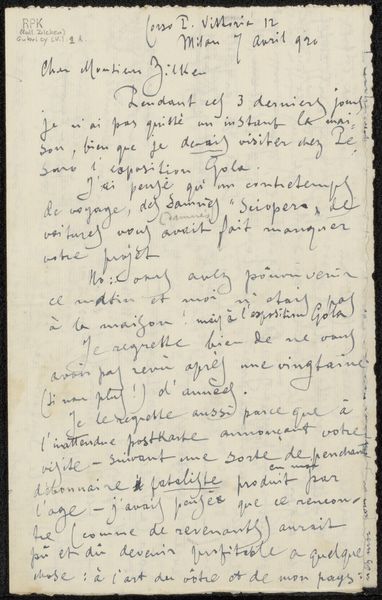 RPK
(Coll. Zilcken)
Grubicy (V.) 2 A.
Corso P. Vittoria 12
Milan 7 avril 920
Cher Monsieur Zilken
Pendant ces 3 derniers jours
je n'ai pas quitté un instant la mai-
son, bien que je devais visiter chez Pe-
saro l'exposition Gola.
J'ai pensé qu'un contretemps
de voyage, des "Sciopero" de
voitures vous avait fait manquer
votre projet
No: vous avez pû venir
ce matin et moi n'étais pas
à la maison! mais à l'exposition Gola
Je regrette bien de ne vous
avoir pas revu après une vingtaine
(si non plus!) d'années.
Je le regrette aussi parce que à
l'inattendue postkarte annonçant votre
visite – suivant une sorte de penchant
débonnaire & fataliste produit en moi par
l'age – j'avais pensé que ce rencon-
tre (comme de revenants) aurait
pû et dû devenir profitable a quelque
chose: à l'art du vôtre et de mon pays: